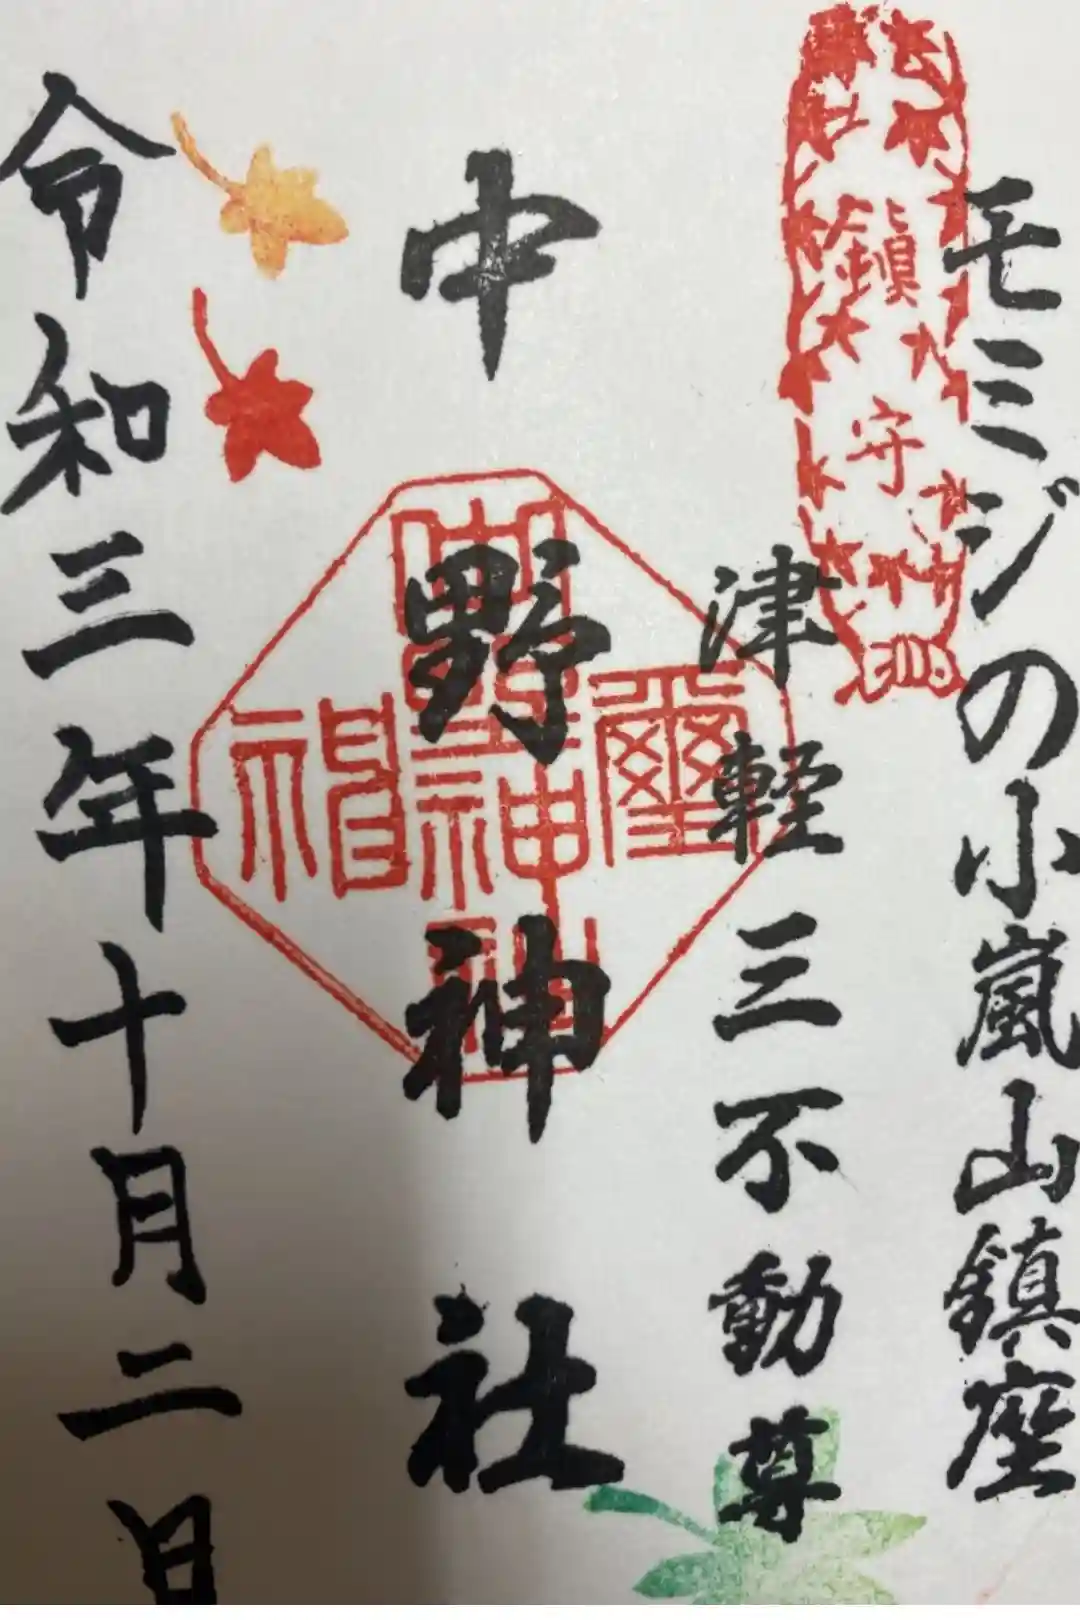 モミジの小嵐山鎮座
鎮守
津軽三不動尊
中野神社
令和三年十月二日